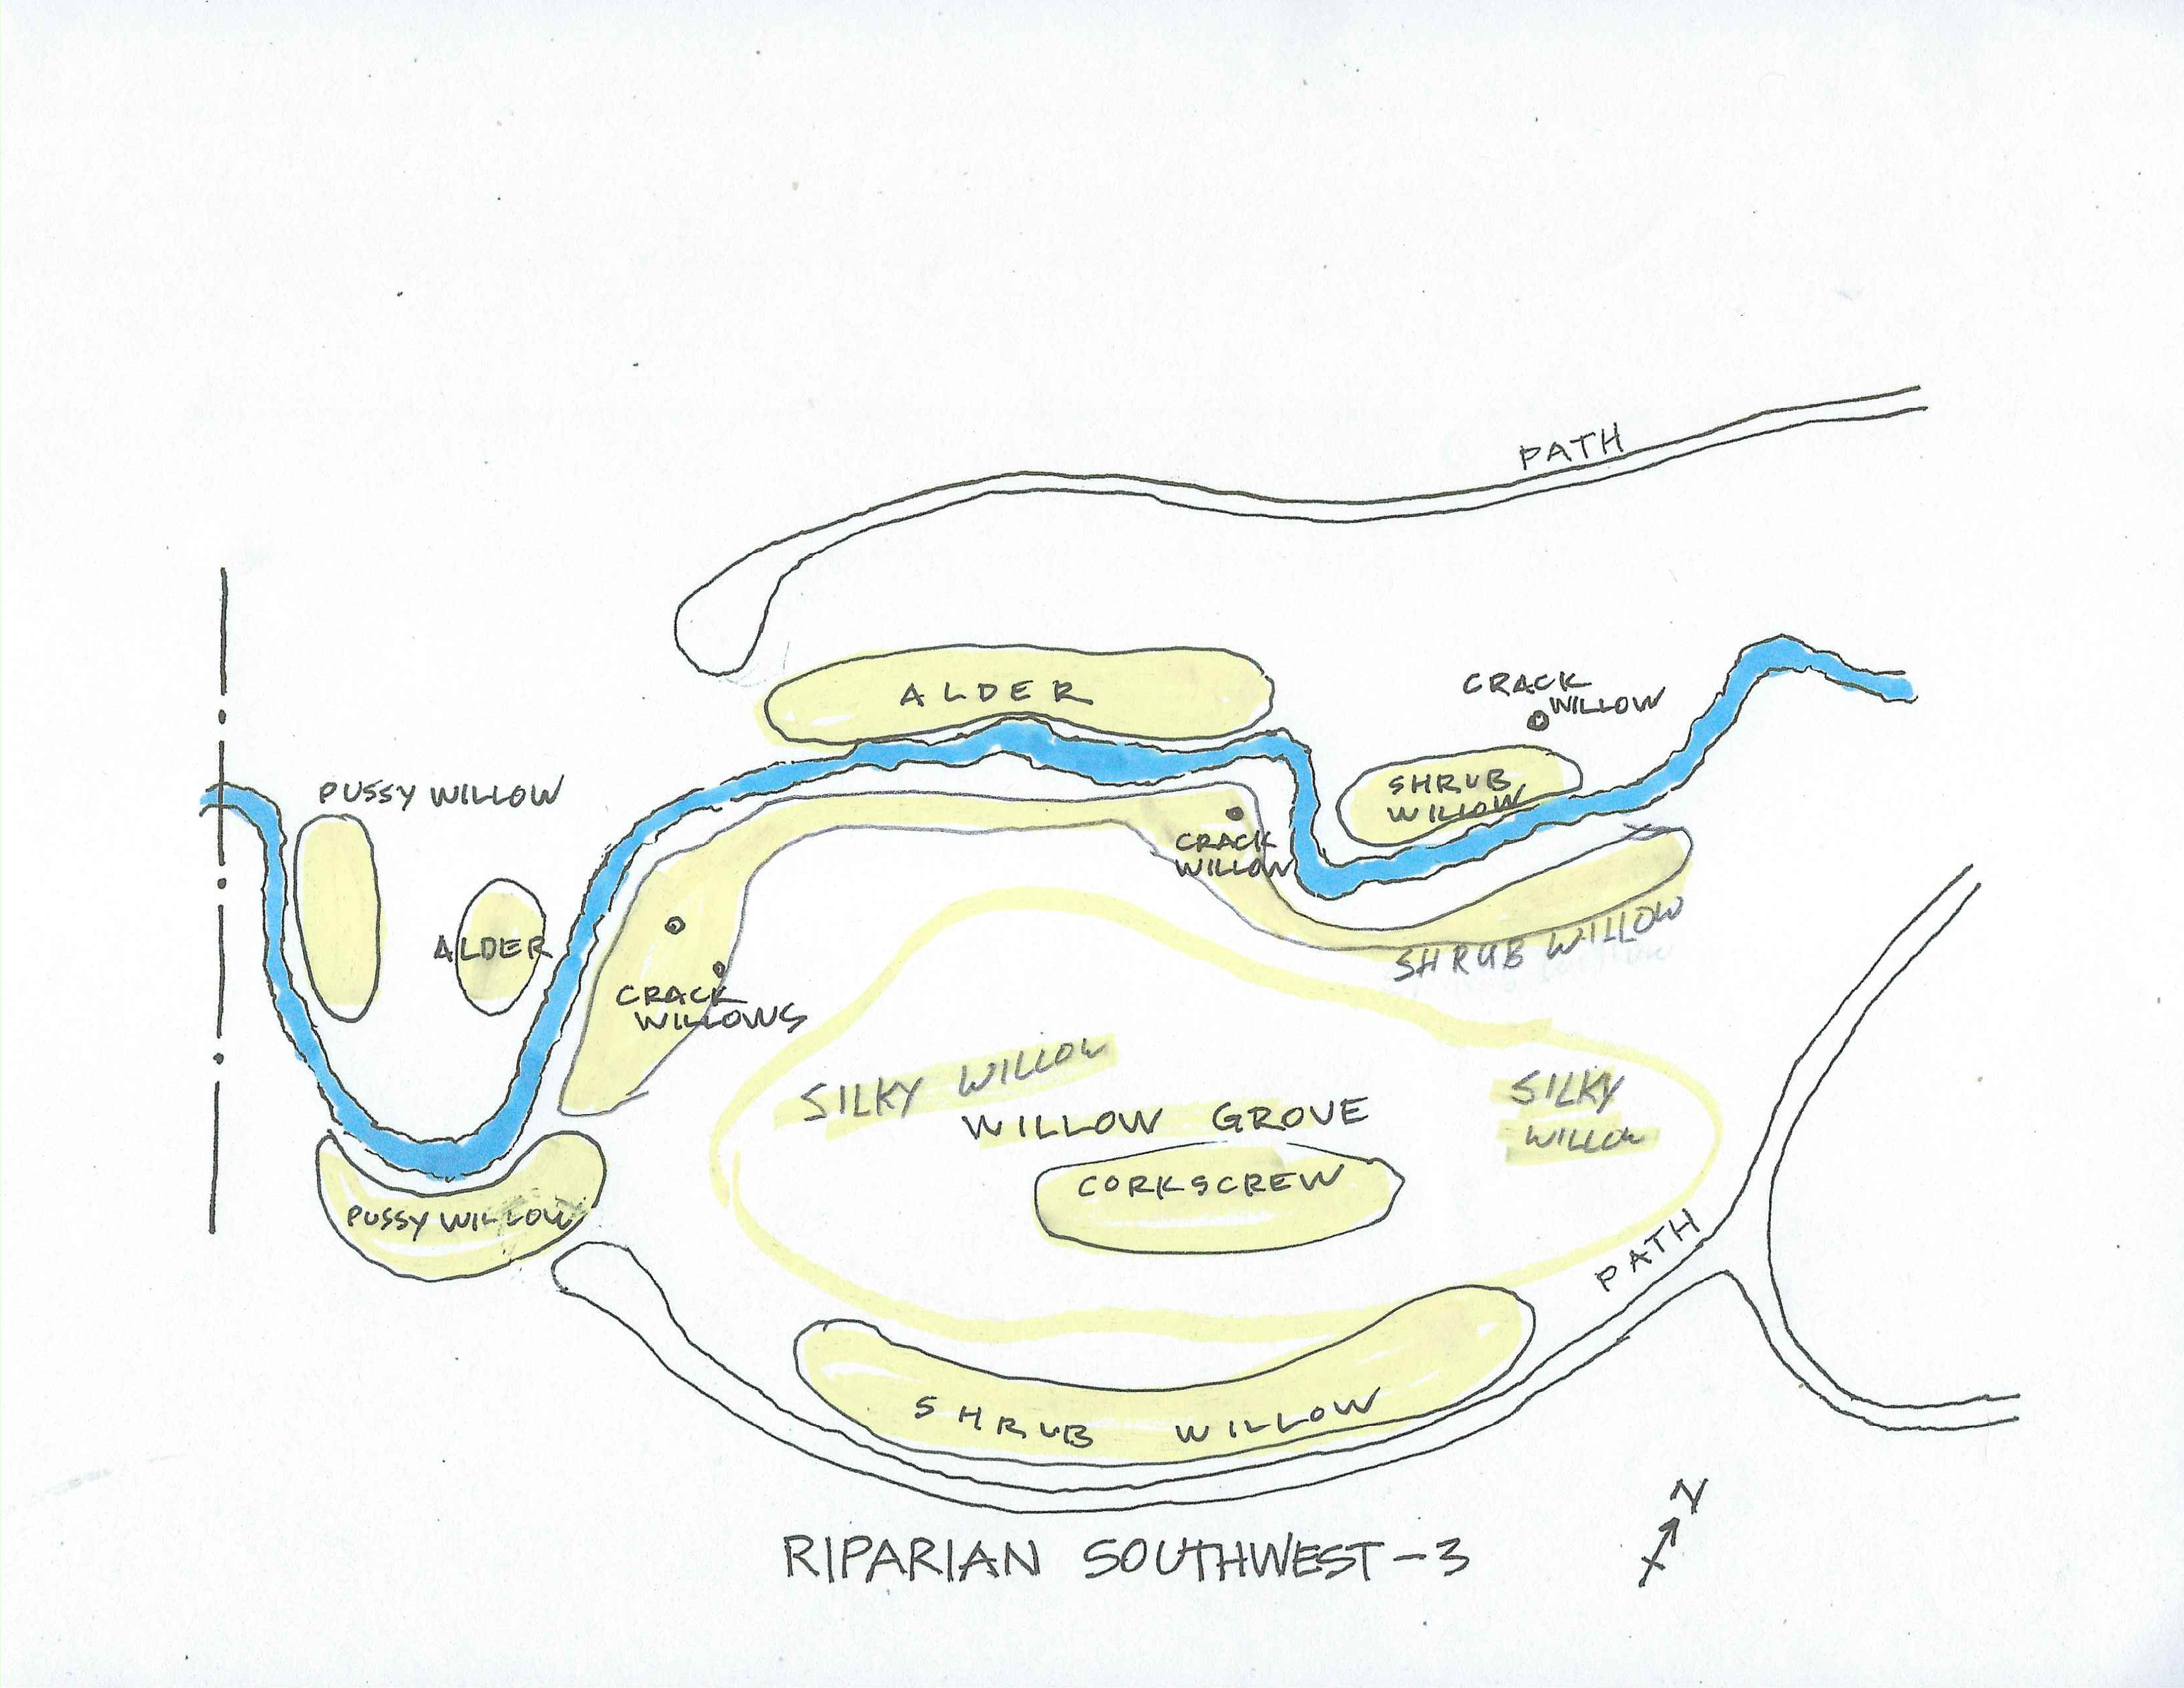 PATH
CRACK
WILLOW
ALDER
SHRUB
WILLOW
PUSSY WILLOW
CRACK
WILLOW
ALDER
SHRUB WILLOW
CRACK
WILLOWS
SILKY WILLOW
SILKY
WILLOW
WILLOW GROVE
CORKSCREW
PUSSY WILLOW
PATH
SHRUB WILLOW
N
RIPARIAN SOUTHWEST-3